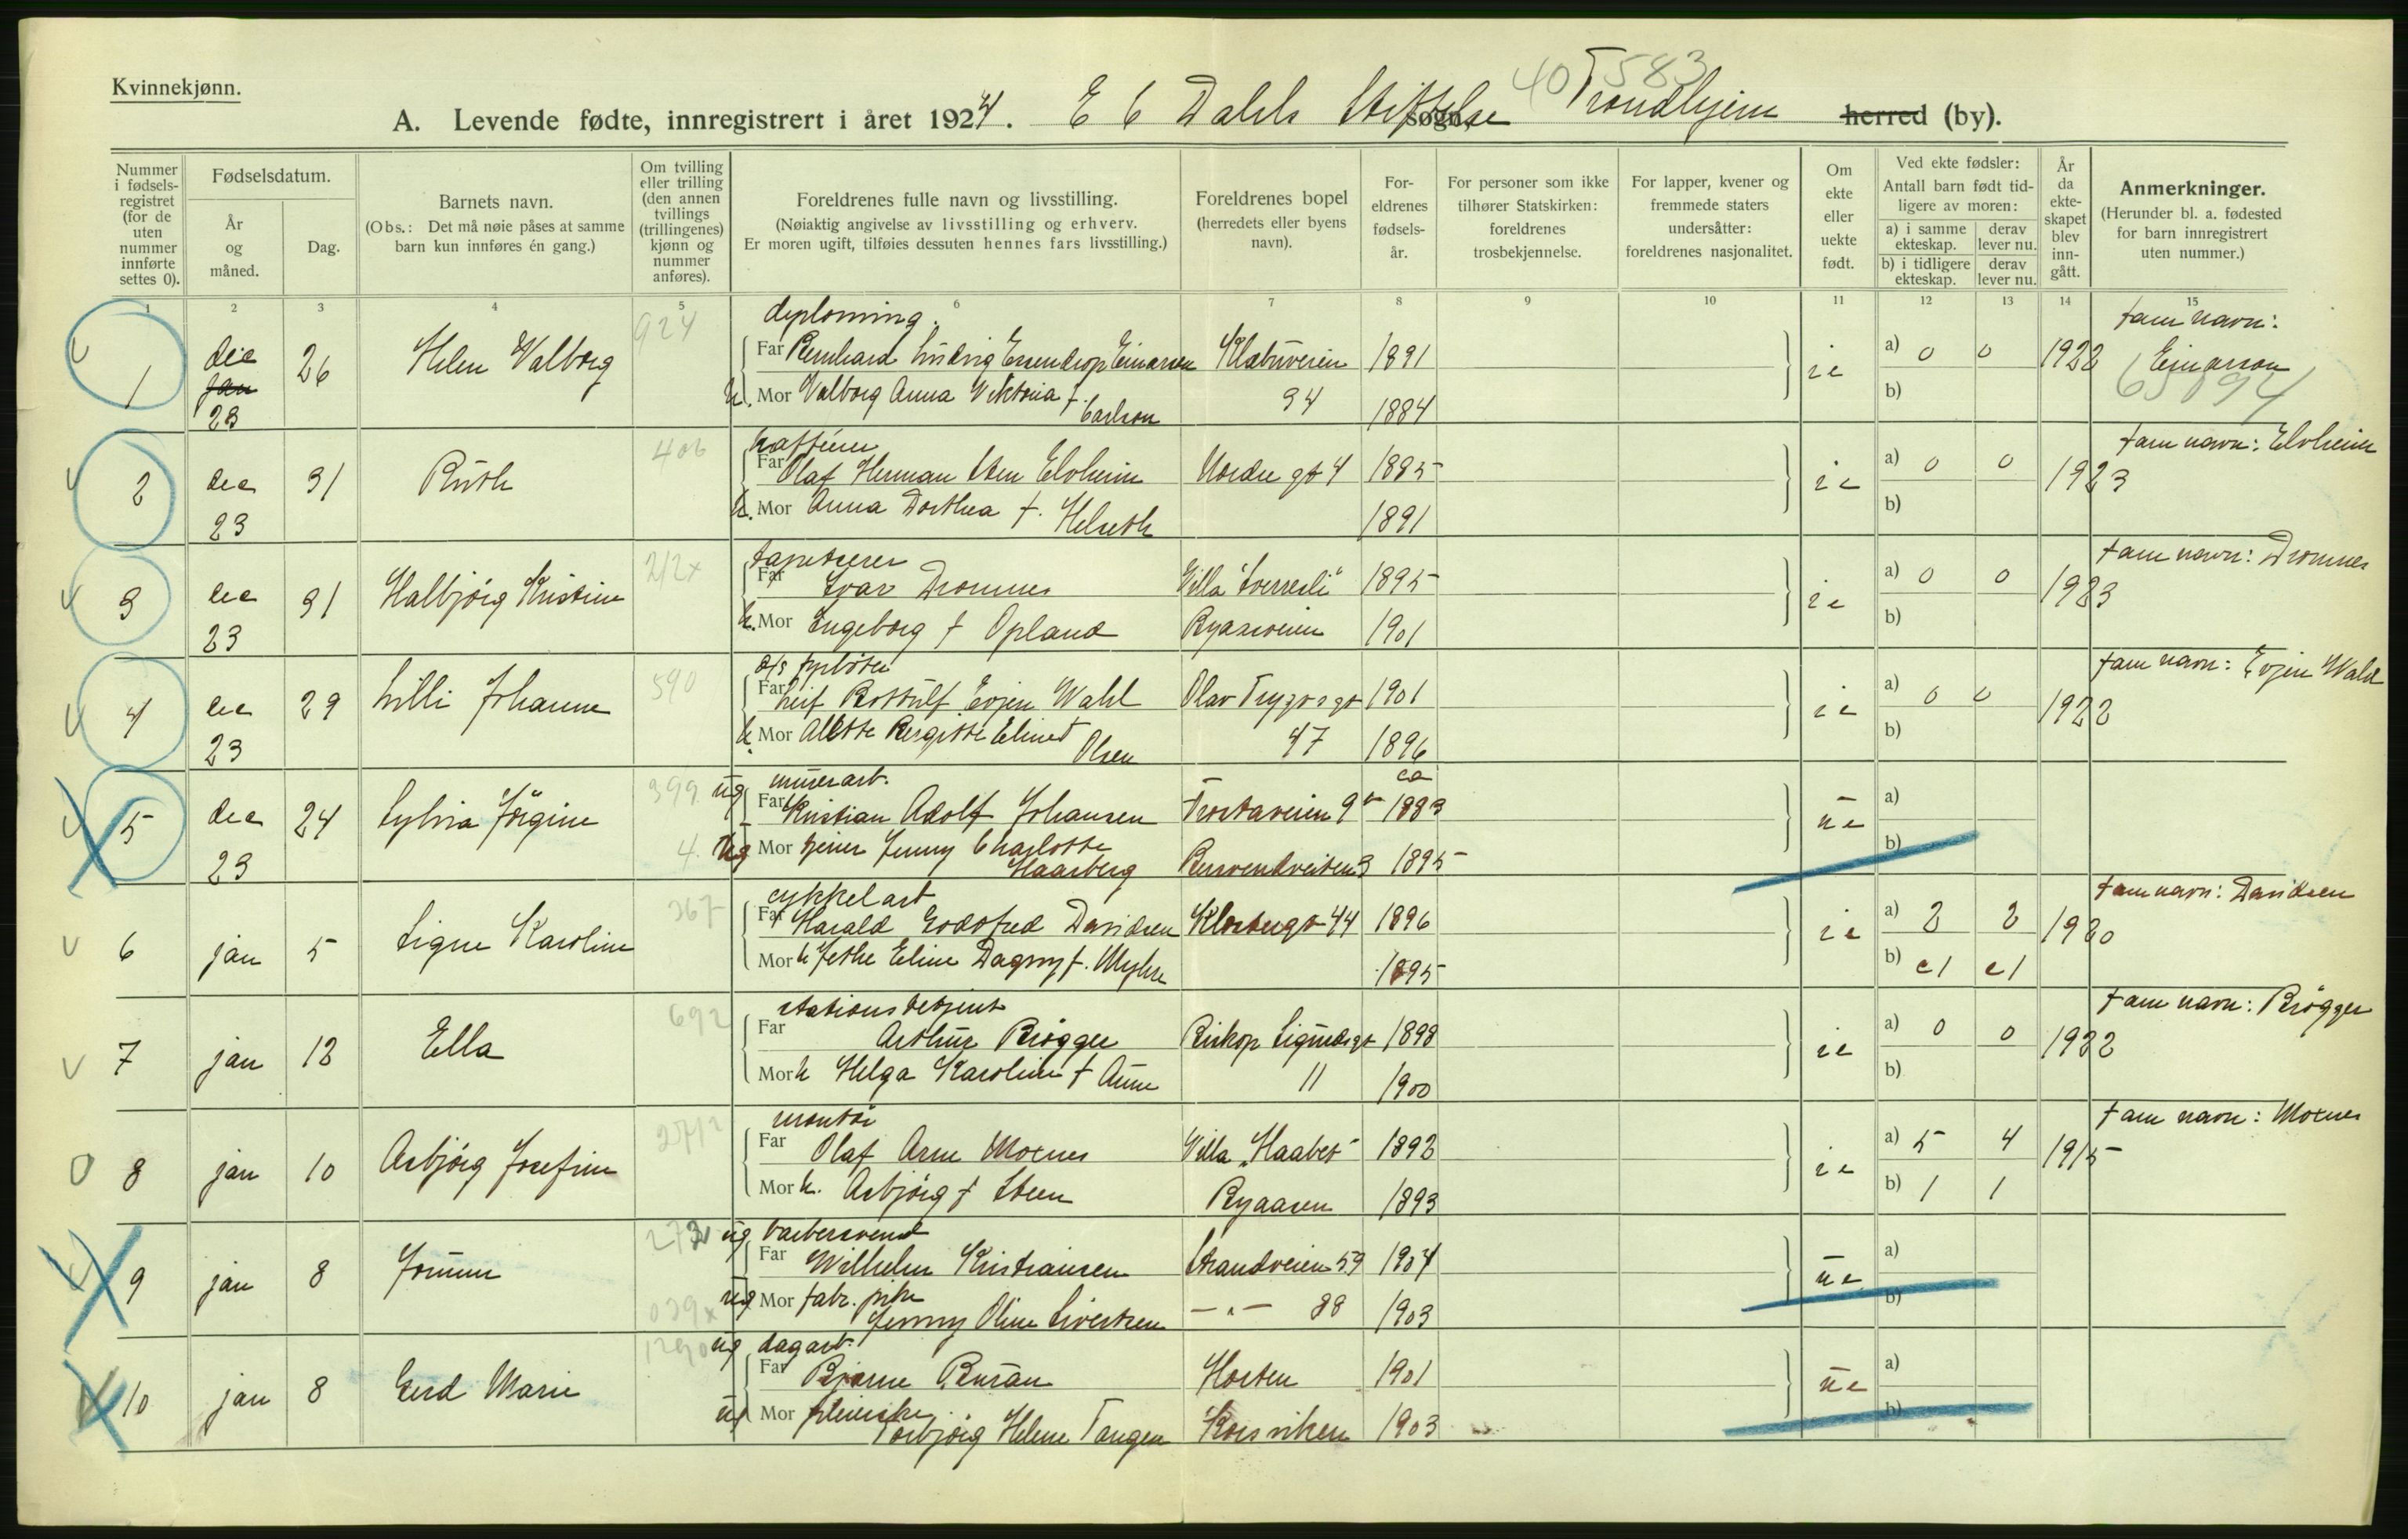 Kvinnekjønn.
40 583
A. Levende fødte, innregistrert i året 1924. E C Dahls Stiftelse sogn, Trondhjem herred (by).
Nummer i fødselsregistret (for de uten nummer innførte settes 0).
Fødselsdatum.
År og måned.
Dag.
Barnets navn.
(Obs.: Det må nøie påses at samme barn kun innføres én gang.)
Om tvilling eller trilling (den annen tvillings (trillingenes) kjønn og nummer anføres).
Foreldrenes fulle navn og livsstilling.
(Nøiaktig angivelse av livsstilling og erhverv. Er moren ugift, tilføies dessuten hennes fars livsstilling.)
Foreldrenes bopel (herredets eller byens navn).
Foreldrenes fødselsår.
For personer som ikke tilhører Statskirken: foreldrenes trosbekjennelse.
For lapper, kvener og fremmede staters undersåtter: foreldrenes nasjonalitet.
Om ekte eller uekte født.
Ved ekte fødsler: Antall barn født tidligere av moren:
a) i samme ekteskap. derav lever nu.
b) i tidligere ekteskap. derav lever nu.
År da ekteskapet blev inngått.
Anmerkninger.
(Herunder bl. a. fødested for barn innregistrert uten nummer.)
1 2 3 4 5 6 7 8 9 10 11 12 13 14 15
924 diploming. fam navn:
1 dec jan 23 26 Helen Valborg Far Bernhard Ludvig Essendrop Einarsen Klæbuveien 1891 ie a) 0 0 1922 Einarson
h. Mor Valborg Anna Viktoria f. Carlson 34 1884 b) 65094
406 hattéurer fam navn: Elvheim
2 dec 23 31 Ruth Far Olaf Herman Sten Elvheim Nordre gt 4 1885 ie a) 0 0 1923
h. Mor Anna Dorthea f. Helseth 1891 b)
212x tapetserer fam navn: Dromnes
3 dec 23 31 Halbjörg Kristine Far Ivar Dromnes Villa "Sverresli" 1895 ie a) 0 0 1923
h. Mor Engeborg f Opland Byaasveien 1901 b)
590 fam navn: Evjen Wahl
4 dec 23 29 Lilli Johanne Far Leif Rottulf Evjen Wahl Olav Trygvs gt 1901 ie a) 0 0 1922
h. Mor Alette Bergitte Eline f Olsen 47 1896 b)
399 ug murerarb. ca
5 dec 23 24 Sylvia Jörgine Far Kristian Adolf Johansen Trostaveien 9 1883 ue a)
4. ug Mor Jenny Charlotte Haarberg 3 1895 b)
367 cykkelarb fam navn: Davidsen
6 jan 5 Signe Karoline Far Harald Godtfred Davidsen Klostergt 44 1896 ie a) 2 2 1920
Mor h Jethe Eline Dagny f. Myhre 1895 b) e1 e1
692 stationsbetjent fam navn: Brögger
7 jan 12 Ella Far Arthur Brögger Biskop Sigurds gt 1898 ie a) 0 0 1922
Mor h Helga Karoline f Aune 11 1900 b)
2712 montör fam navn: Moxnes
8 jan 10 Asbjörg Josefine Far Olaf Arne Moxnes Villa „Haabet" 1892 ie a) 5 4 1915
Mor h. Asbjörg f Steen Byaasen 1893 b) 1 1
273 ug barbersvend
9 jan 8 Jorunn Far Wilhelm Kristiansen Strandveien 59 1904 ue a)
039x ug Mor fabr. pike Jenny Oline Sivertsen — " — 88 1903 b)
1290 ug dagarb.
10 jan 8 Gerd Marie Far Bjarne Buran Horten 1901 ue a)
ug Mor pleierske Torbjörg Helene Tangen Korsviken 1903 b)